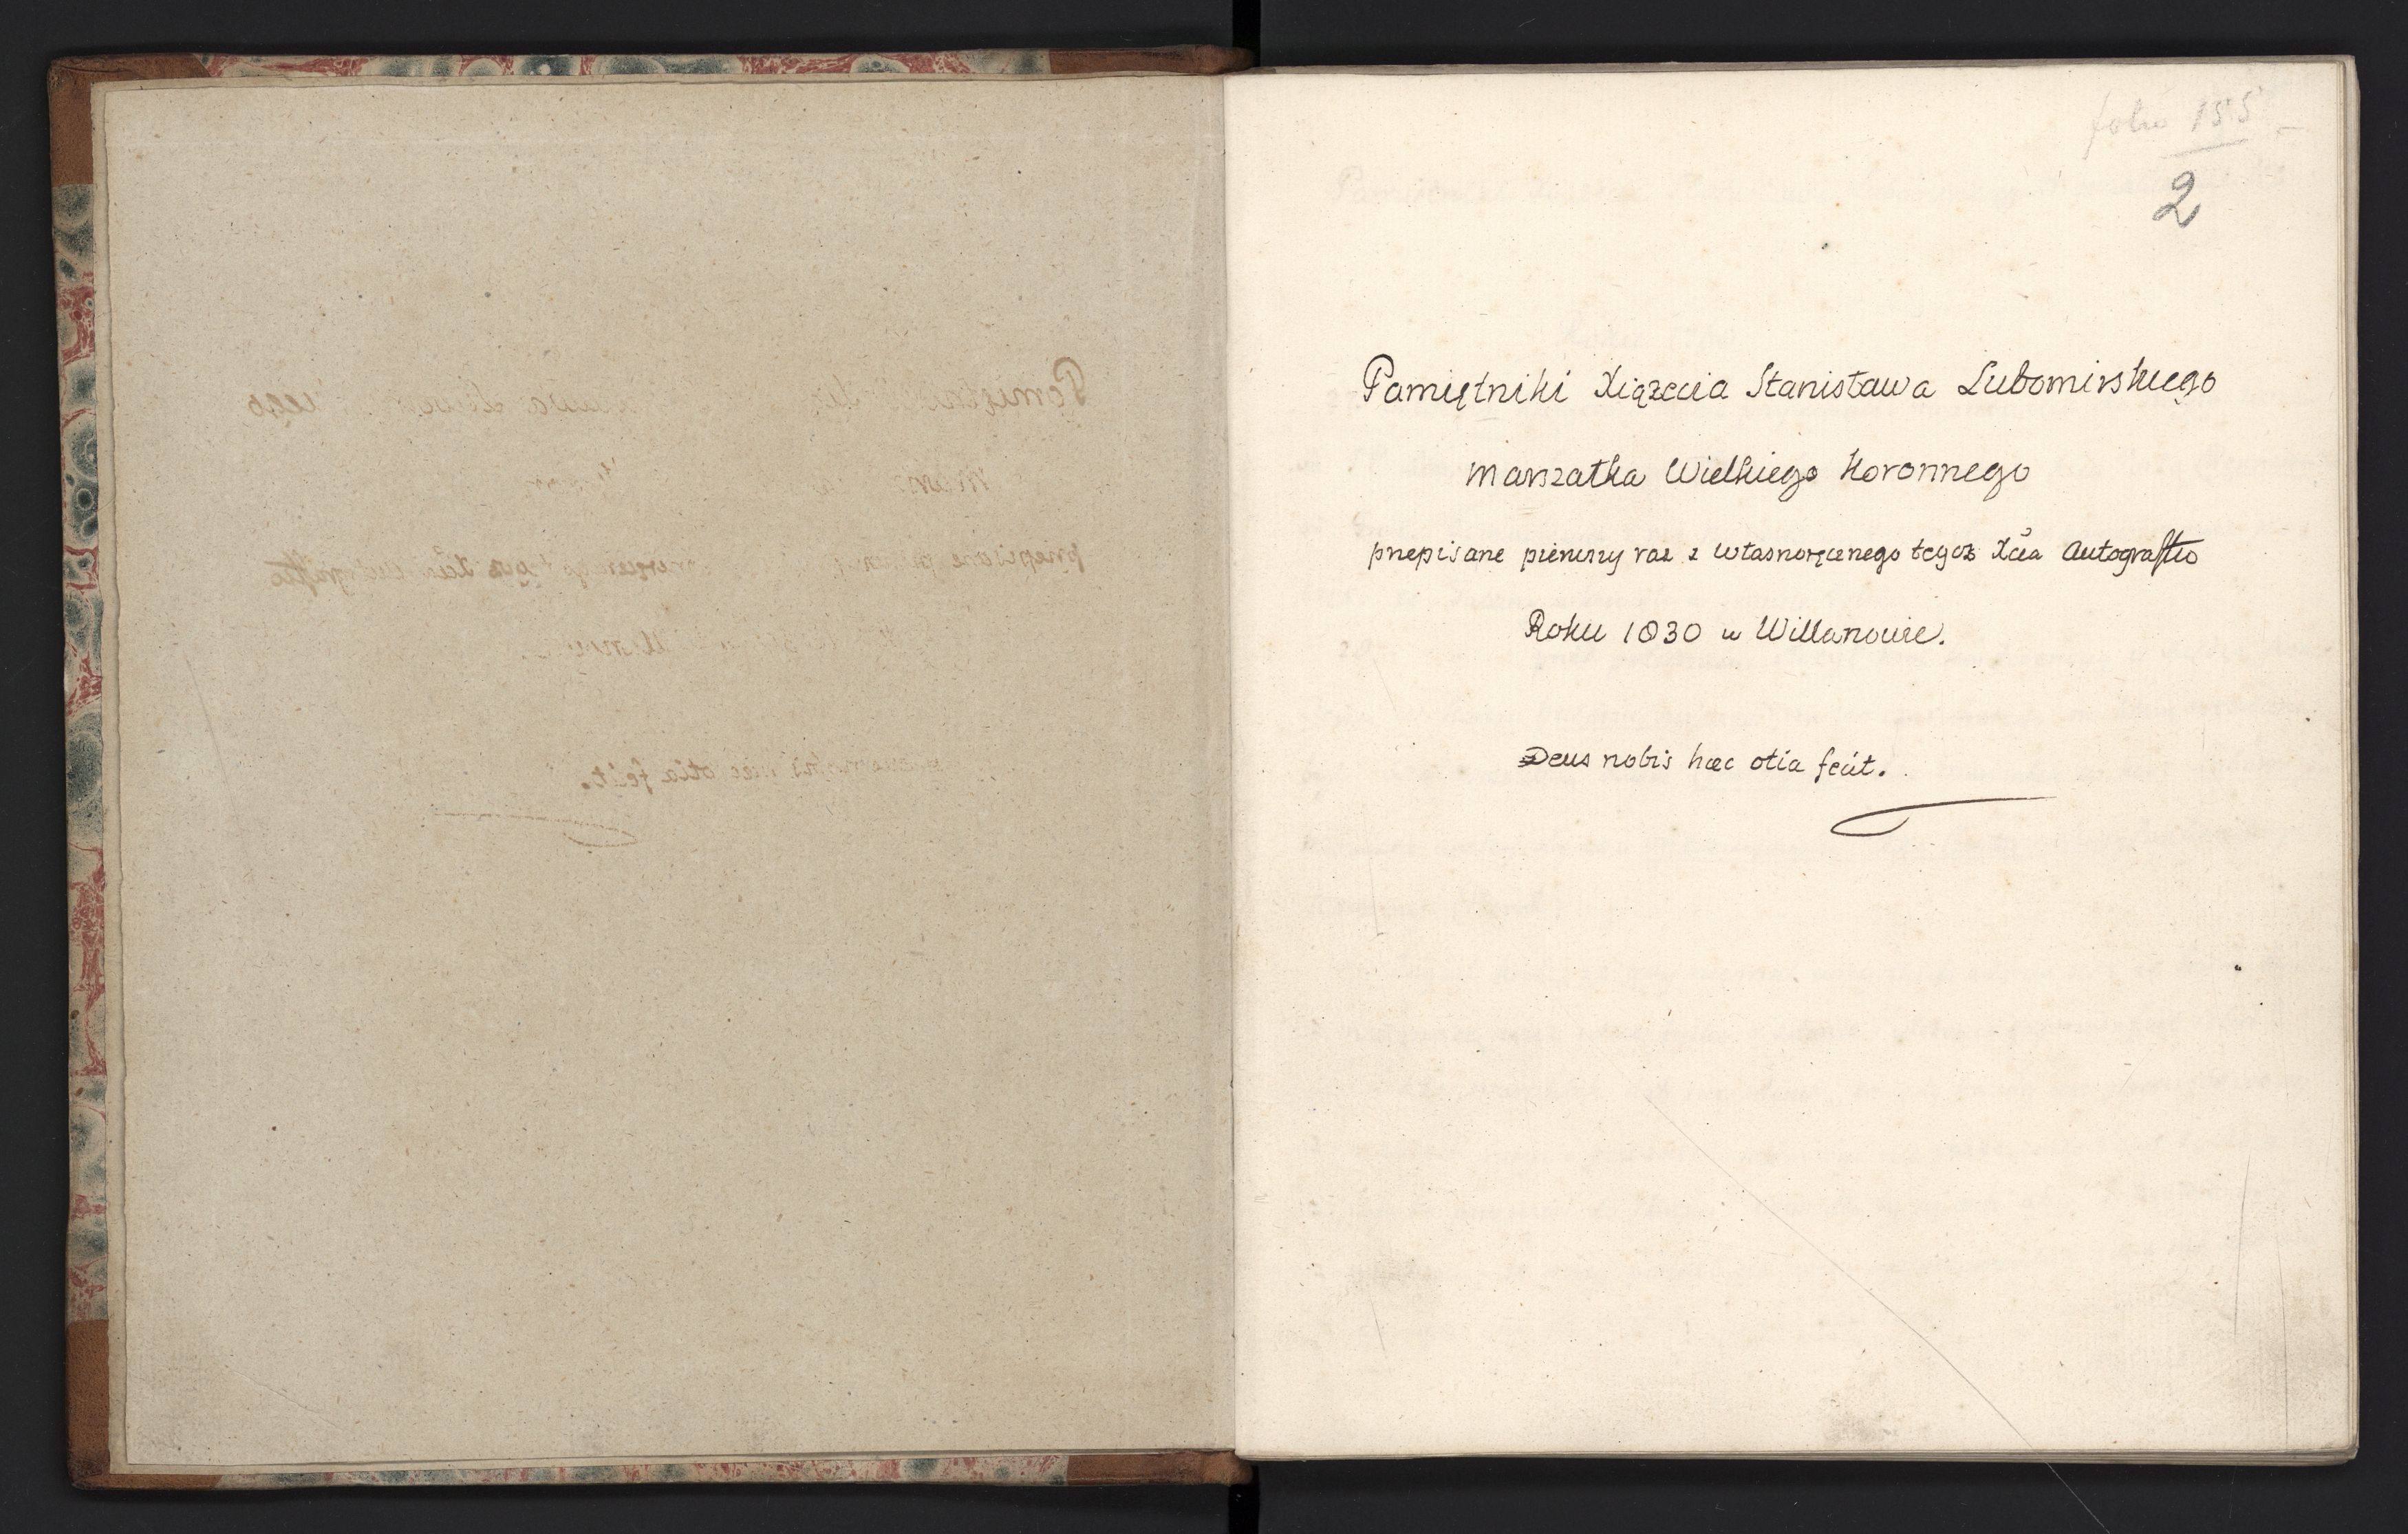 folio 155
2
Pamiętniki Xiążęcia Stanisława Lubomirskiego
Marszałka Wielkiego Koronnego
przepisane pierwszy raz z własnoręcznego tegoż Xcia Autografu
Roku 1830 w Willanowie.
Deus nobis hæc otia fecit.